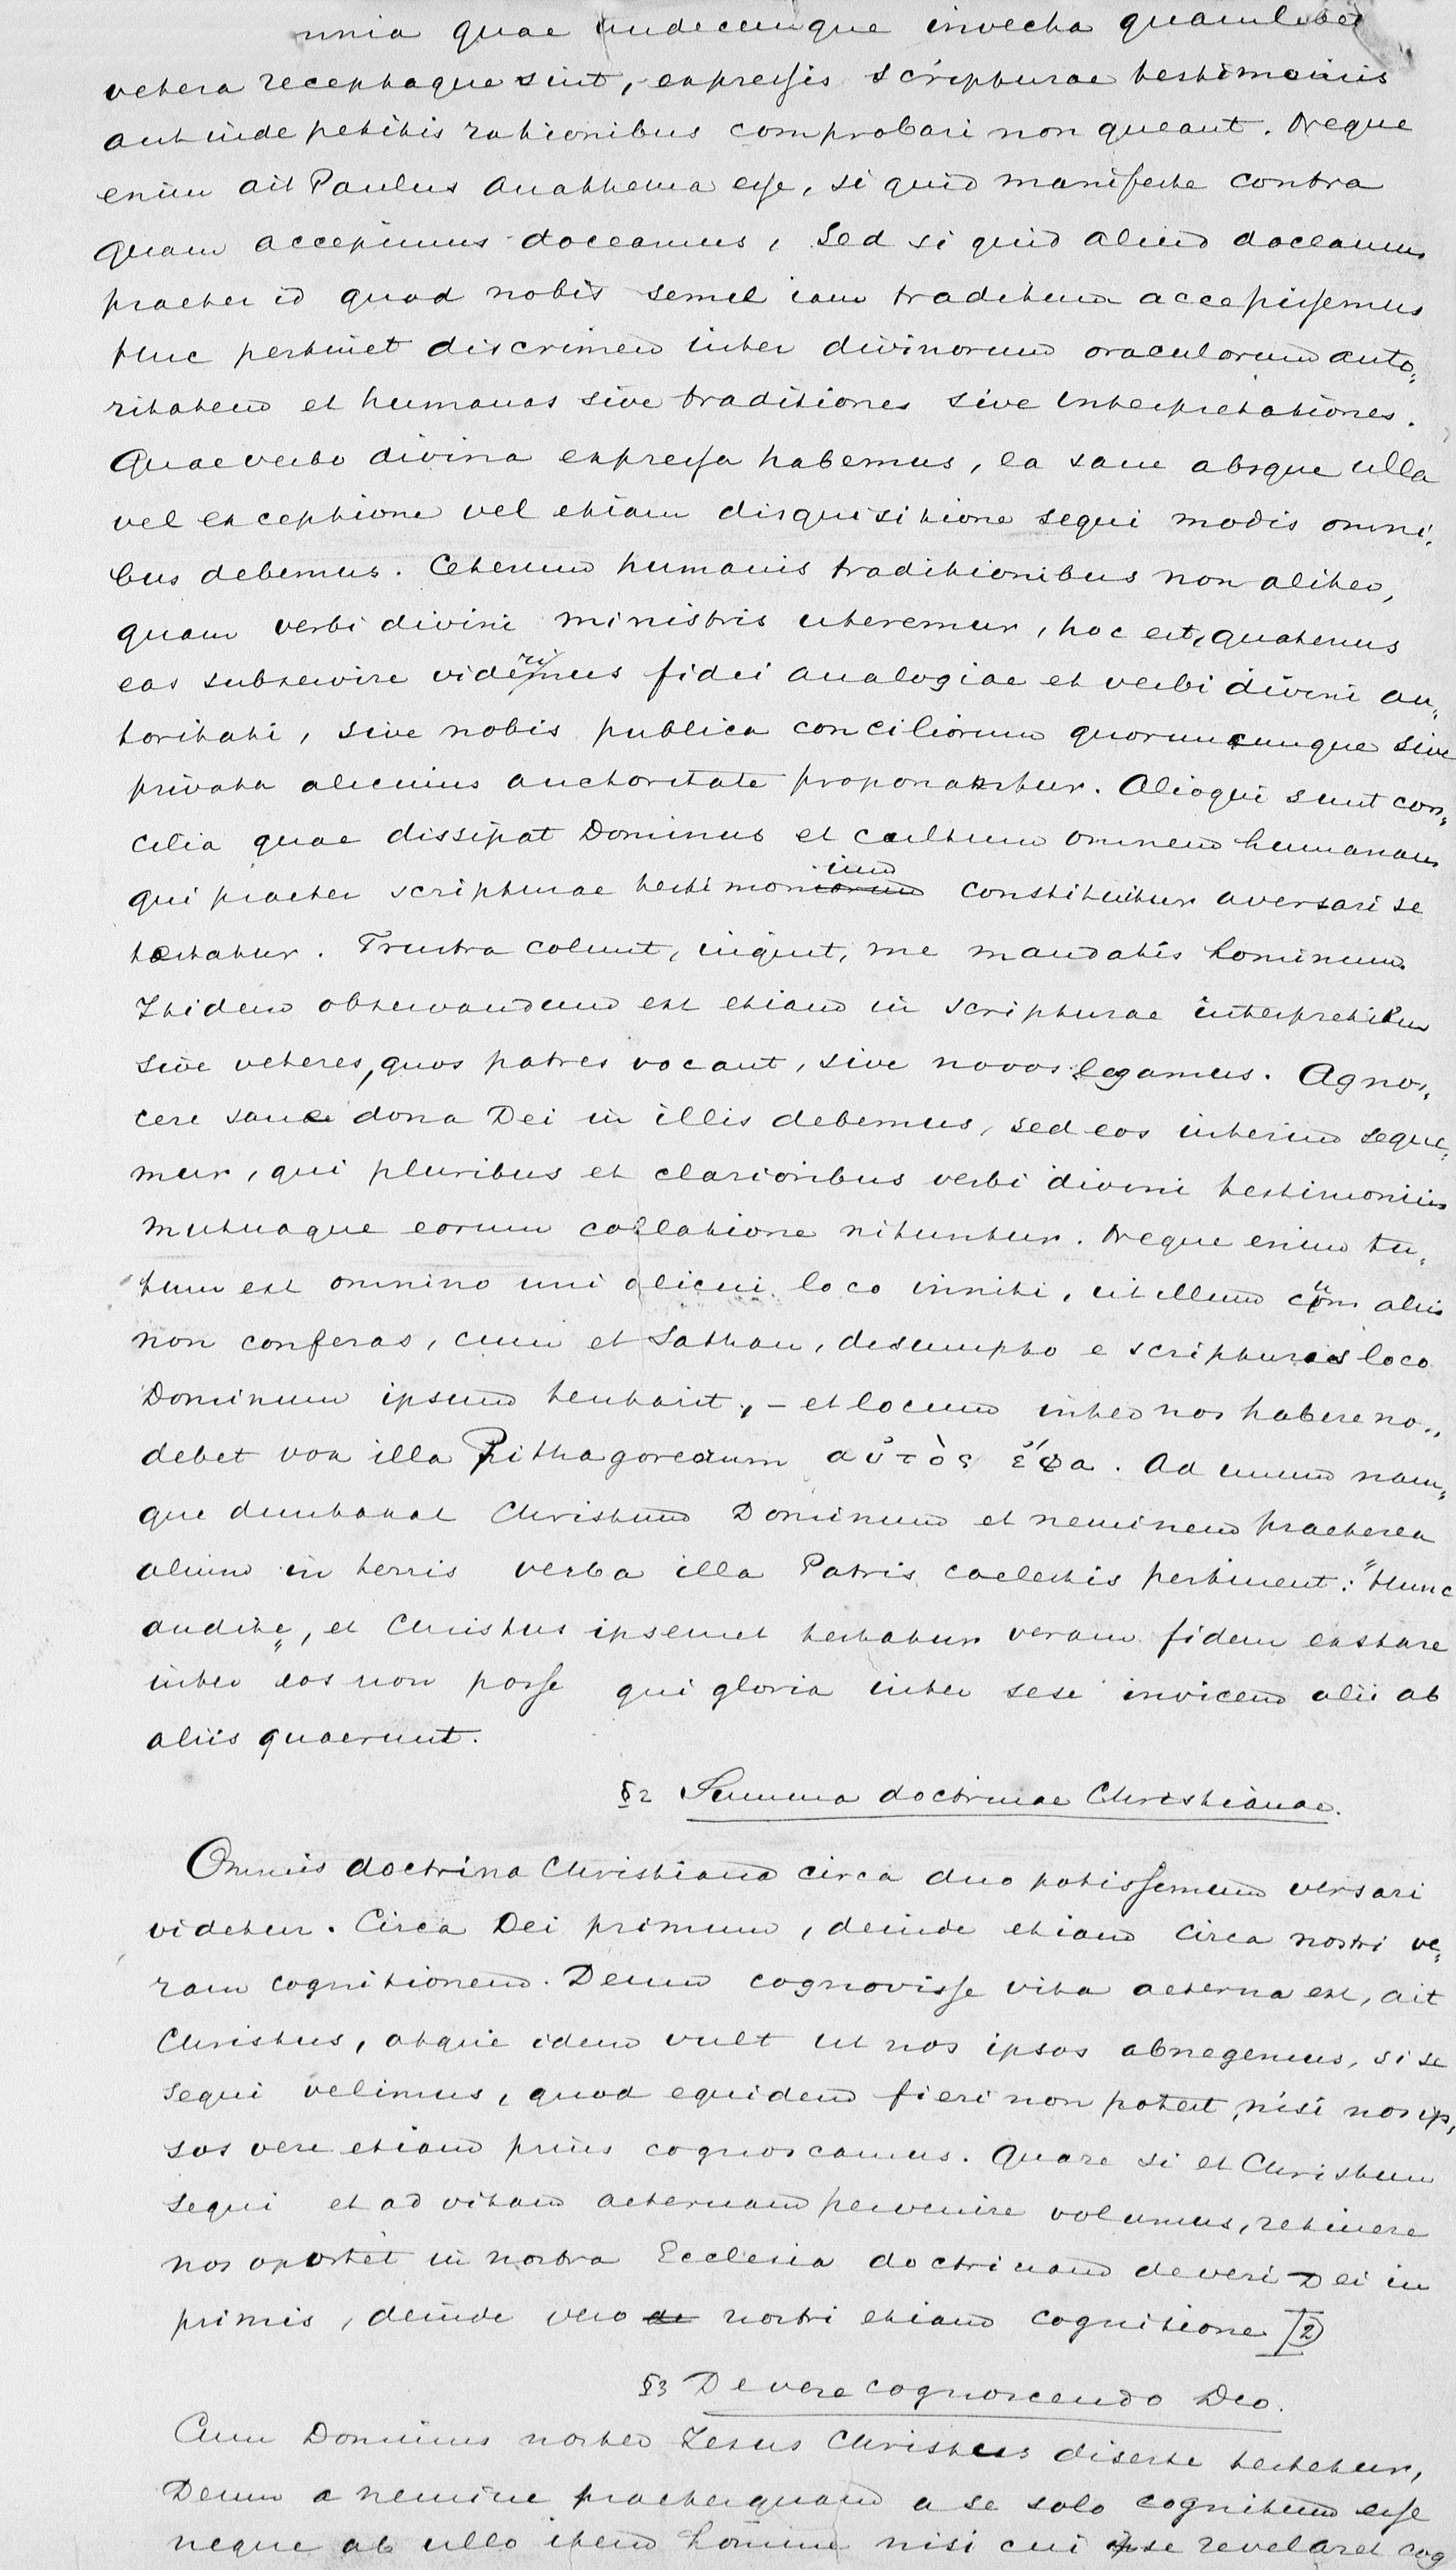 mnia quae undecunque invecta quamlibet
vetera receptaque sint, expressis scripturae testimoniis
aut inde petitis rationibus comprobari non queant. Neque
enim ait Paulus Anathema esse, si quid manifeste contra
quam accepimus doceamus, sed si quid aliud doceamus
praeter id quod nobis semel iam traditum accepissemus
Huc pertinet discrimen inter divinorum oraculorum auto„
ritatem et humanas sive traditiones sive interpretationes.
Quae verbo divina expressa habemus, ea sane absque ulla
vel exceptione vel etiam disquisitione sequi modis omni„
bus debemus. Ceterum humanis traditionibus non aliter,
quam verbi divini ministris uteremur, hoc est, quatenus
eas subservire videri mus fidei analogiae et verbi divini au„
toritati, sive nobis publica conciliorum quoruncunque sive
privata alicuius auchoritate proponantur. Alioqui sunt con„
cilia quae dissipat Dominus et cultum omnem humanam
qui praeter scripturae testimonium constituitur aversari se
testatur. Frustra colunt, inquit, me mandatis hominum.
Itidem observandum est etiam in scripturae interpretibus
sive veteres, quos patres vocant, sive novos legamus. Agno„
cere sane dona Dei in illis debemus, sed eos interim seque„
mur, qui pluribus et clarioribus verbi divini testimoniis
mutuaque eorum collatione nituntur. Neque enim tu„
tum est omnino uni alicui loco inniti, ut illum cum aliis
non conferas, cum et Sathan, desumpto e scripturas loco
Dominum ipsum tentarit, – et locum inter nos habere no„
debet vox illa Pithagoreorum αὐτὸς ἔφα. Ad unum nam„
que duntaxat Christum Dominum et neminem praeterea
alium in terris verba illa Patris caelestis pertinent: "Hunc
audite„, et Christus ipsemet testatur veram fidem exstare
inter eos non posse qui gloria inter sese invicem alii ab
aliis quaerunt.
§2 Summa doctrinae Christianae.
Omnis doctrina Christiana circa duo potissemum versari
videtur. Circa Dei primum, deinde etiam circa nostri ve„
ram cognitionem. Deum cognovisse vita aeterna est, ait
Christus, atque idem vult ut nos ipsos abnegemus, si se
sequi velimus, quod equidem fieri non potest, nisi nos ip„
sos vere etiam prius cognoscamus. Quare si et Christum
sequi et ad vitam aeternam pervenire volumus, retinere
nos oportet in nostra Ecclesia doctrinam de veri Dei in
primis, deinde vero de nostri etiam cognitione [2)
§3 De vere cognoscendo Deo.
Cum Dominus noster Jesus Christus diserte testetur,
Deum a nemine praeterquam a se solo cognitum esse
neque ab ullo item homine nisi cui ipse revelaret cog